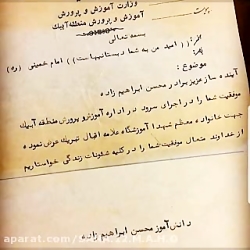 وزارت آموزش و پرورش
آموزش و پرورش منطقه آبیک
بسمه تعالی
(( امید من به شما دبستانیهاست )) امام خمینی (ره)
موضوع :
آینده ساز عزیز برادر محسن ابراهیم زاده
موفقیت شما را در اجرای سرود در اداره آموزش و پرورش منطقه آبیک
جهت خانواده معظم شهدا آموزشگاه علامه اقبال تبریک عرض نموده
از خداوند متعال موفقیت شما را در کلیه شئونات زندگی خواستاریم
دانش آموز محسن ابراهیم زاده